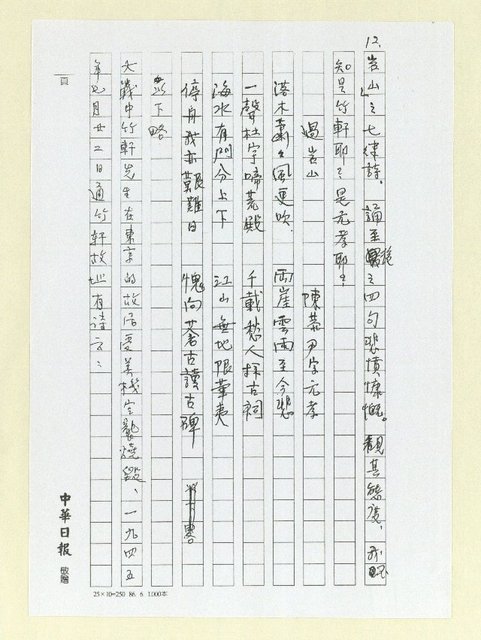 12.崖山之七律詩。誦至後之四句悲憤慷慨。觀其態度，不
知是竹軒耶？是元孝耶！
過崖山　陳恭尹字元孝
落木蕭々風更吹、兩崖雲雨至今悲
一聲杜宇啼荒殿　千載愁人探古祠
海水有門分上下　江山無地限華夷
停舟我亦艱難日　愧向蒼苔讀古碑
以下略
大戰中竹軒先生在東京的故居受美機空襲燒毀、一九四五
年七月廿二日過竹軒故址有詩云：
頁
中華日報 敬贈
25×10=250 86. 6. 1.000本